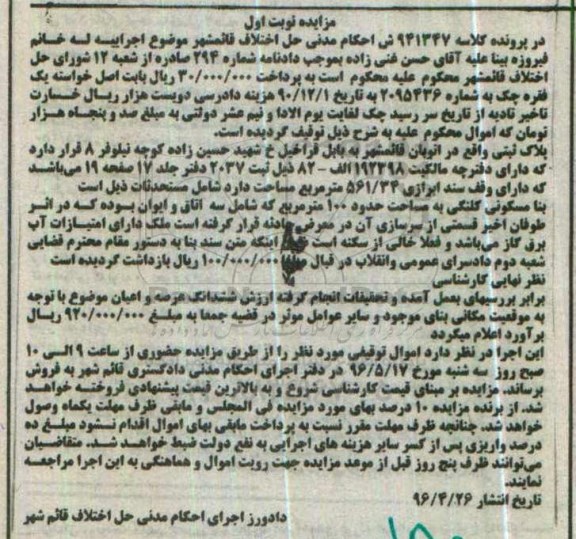 مزایده نوبت اول
در پرونده کلاسه ۹۴۱۳۴۷ ش احکام مدنی حل اختلاف قائمشهر موضوع اجراییه له خانم
فیروزه بینا علیه آقای حسن غنی زاده بموجب دادنامه شماره ۲۹۴ صادره از شعبه ۱۲ شورای حل
اختلاف قائمشهر محکوم علیه محکوم است به پرداخت ۳۰/۰۰۰/۰۰۰ ریال بابت اصل خواسته یک
فقره چک به شماره ۲۰۹۵۴۳۶ به تاریخ ۹۰/۱۲/۱ هزینه دادرسی دویست هزار ریال خسارت
تاخیر تادیه از تاریخ سر رسید چک لغایت یوم الادا و نیم عشر دولتی به مبلغ صد و پنجاه هزار
تومان که اموال محکوم علیه به شرح ذیل توقیف گردیده است.
پلاک ثبتی واقع در اتوبان قائمشهر به بابل قراخیل خ شهید حسین زاده کوچه نیلوفر ۸ قرار دارد
که دارای دفترچه مالکیت ۱۹۲۲۹۸ الف - ۸۲ ذیل ثبت ۲۰۳۷ دفتر جلد ۱۷ صفحه ۱۹ می‌باشد
که دارای وقف سند ابرازی ۵۶۱/۳۴ مترمربع مساحت دارد شامل مستحدثات ذیل است
بنا مسکونی کلنگی به مساحت حدود ۱۰۰ مترمربع که شامل سه اتاق و ایوان بوده که در اثر
طوفان اخیر قسمتی از سرسازی آن در معرض حادثه قرار گرفته است ملک دارای امتیازات آب
برق گاز می‌باشد و فعلا خالی از سکنه است اینکه متن سند بنا به دستور مقام محترم قضایی
شعبه دوم دادسرای عمومی وانقلاب در قبال مبلغ ۱۰۰/۰۰۰/۰۰۰ ریال بازداشت گردیده است
نظر نهایی کارشناسی
برابر بررسیهای بعمل آمده و تحقیقات انجام گرفته ارزش ششدانگ عرصه و اعیان موضوع با توجه
به موقعیت مکانی بنای موجود و سایر عوامل موثر در قضیه جمعا به مبلغ ۹۲۰/۰۰۰/۰۰۰ ریال
برآورد اعلام میگردد
این اجرا در نظر دارد اموال توقیفی مورد نظر را از طریق مزایده حضوری از ساعت ۹ الی ۱۰
صبح روز سه شنبه مورخ ۹۶/۵/۱۷ در دفتر اجرای احکام مدنی دادگستری قائم شهر به فروش
برساند. مزایده بر مبنای قیمت کارشناسی شروع و به بالاترین قیمت پیشنهادی فروخته خواهد
شد. از برنده مزایده ۱۰ درصد بهای مورد مزایده فی المجلس و مابقی ظرف مهلت یکماه وصول
خواهد شد. چنانچه ظرف مهلت مقرر نسبت به پرداخت مابقی بهای اموال اقدام نشود مبلغ ده
درصد واریزی پس از کسر سایر هزینه های اجرایی به نفع دولت ضبط خواهد شد. متقاضیان
می‌توانند ظرف پنج روز قبل از موعد مزایده جهت رویت اموال و هماهنگی به این اجرا مراجعه
نمایند.
تاریخ انتشار ۹۶/۴/۲۶
دادورز اجرای احکام مدنی حل اختلاف قائم شهر